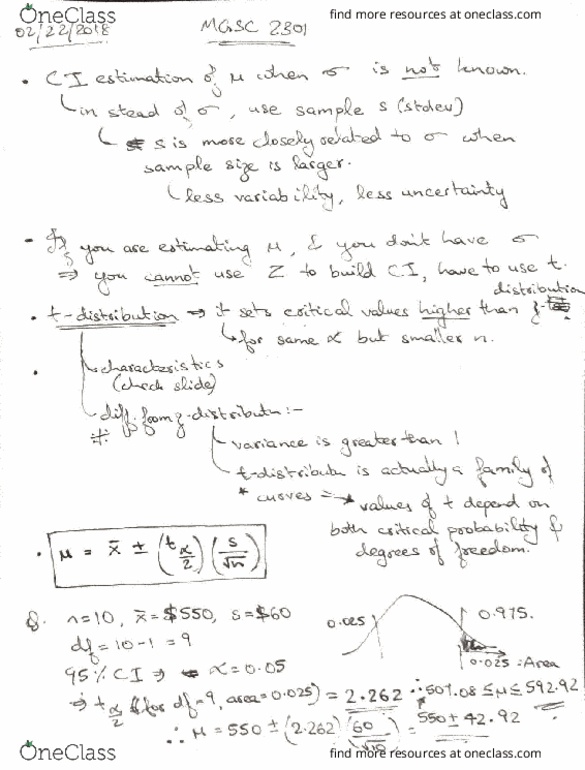 OneClass
find more resources at oneclass.com
02/22/2018
MGSC 2301
• CI estimation of μ when σ is not known.
in stead of σ, use sample s (stdev)
s is more closely related to σ when
sample size is larger.
less variability, less uncertainty
- If you are estimating μ, & you don't have σ
⇒ you cannot use Z to build CI, have to use t.
distribution
• t-distribution → it sets critical values higher than z-
for same α but smaller n.
• characteristics
(check slide)
diff. from z-distributn :-
#:
variance is greater than 1
t-distributn is actually a family of
* curves ⇒ * values of t depend on
both critical probability &
degrees of freedom.
• μ = x̄ ± (t α/2) (s/√n)
Q. n=10, x̄ = $550, s = $60
0.025
0.975.
df = 10-1 = 9
0.025 : Area
95% CI ⇒ α = 0.05
⇒ t α/2 (for df = 9, area = 0.025) = 2.262 ∴ 507.08 ≤ μ ≤ 592.92
∴ μ = 550 ± (2.262) (60/√10) = 550 ± 42.92
OneClass
find more resources at oneclass.com